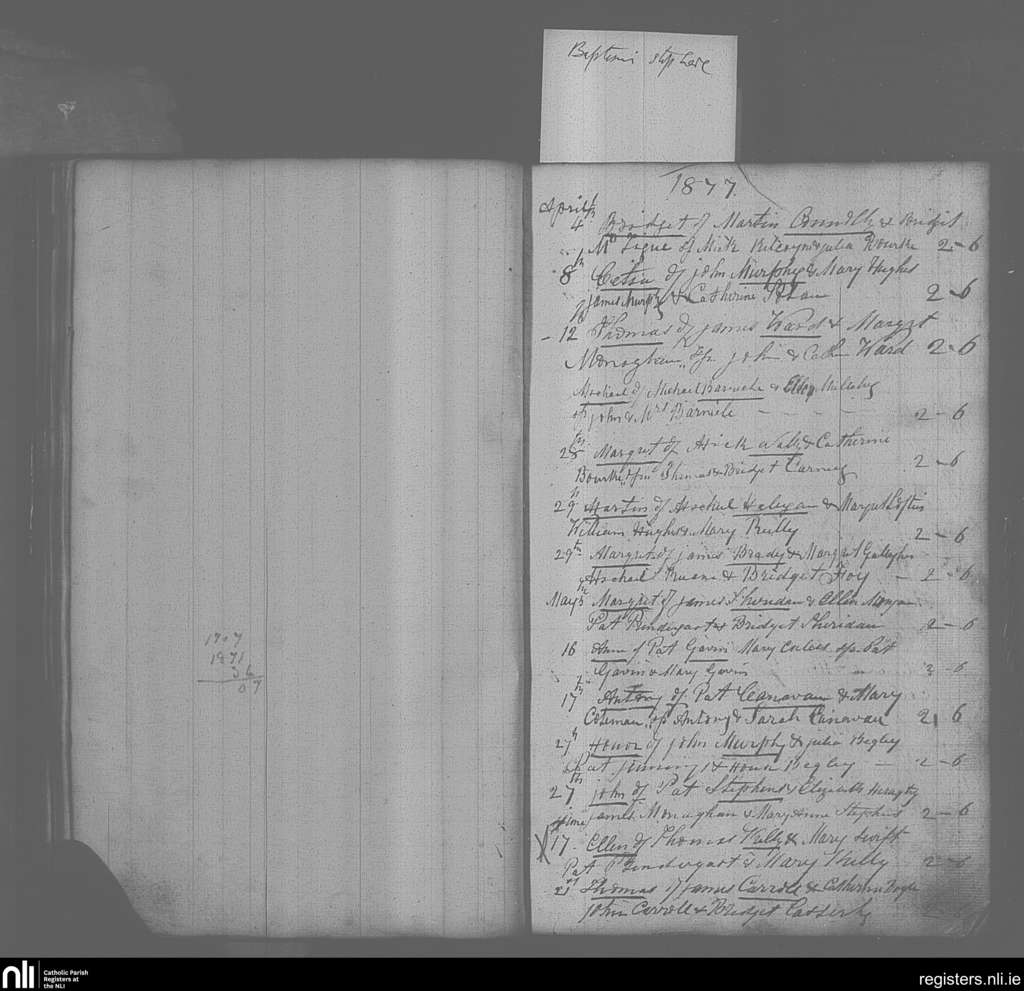 Baptisms stop here
1877
April
4 Bridget of Martin & Bridget
Mc Tigue of Mick & Julia Rourke 2-6
8th Celia of John Murphy & Mary Hughes
James Murphy & Catherine 2-6
- 12 Thomas of James Ward & Margret
Monoghan, sps John & Cath Ward 2-6
Micheal of Michael Barnicle & Ellen
sps John & Mrs Barnicle - - - 2-6
28 Margret of Mick & Catherine
Bourke, Thomas & Bridget Carney 2-6
29th Martin of Micheal & Margret Loftus
William Hughes & Mary Reilly 2-6
29th Margret of James Brady & Margret Gallagher
Micheal Ruane & Bridget Foy - 2-6
May 5th Margret of James Sheridan & Ellen
Pat Pendergast & Bridget Sheridan 2-6
16 Anne of Pat Gavin Mary sps Pat
Gavin & Mary Gavin 2-6
17th Antony of Pat Canavan & Mary
Coleman, sps Antony & Sarah Canavan 2, 6
27th Honor of John Murphy & Julia Begley
Pat & Honor Begley - 2-6
27th John of Pat Stephens & Elizabeth
James Monaghan & Mary Anne Stephens 2-6
June
X 17 Ellen of Thomas & Mary Swift
Pat Pendergast & Mary 2-6
21st Thomas of James Carroll & Catherine
John Carroll & Bridget Casserly
1871
36
nli
Catholic Parish
Registers at
the NLI
registers.nli.ie